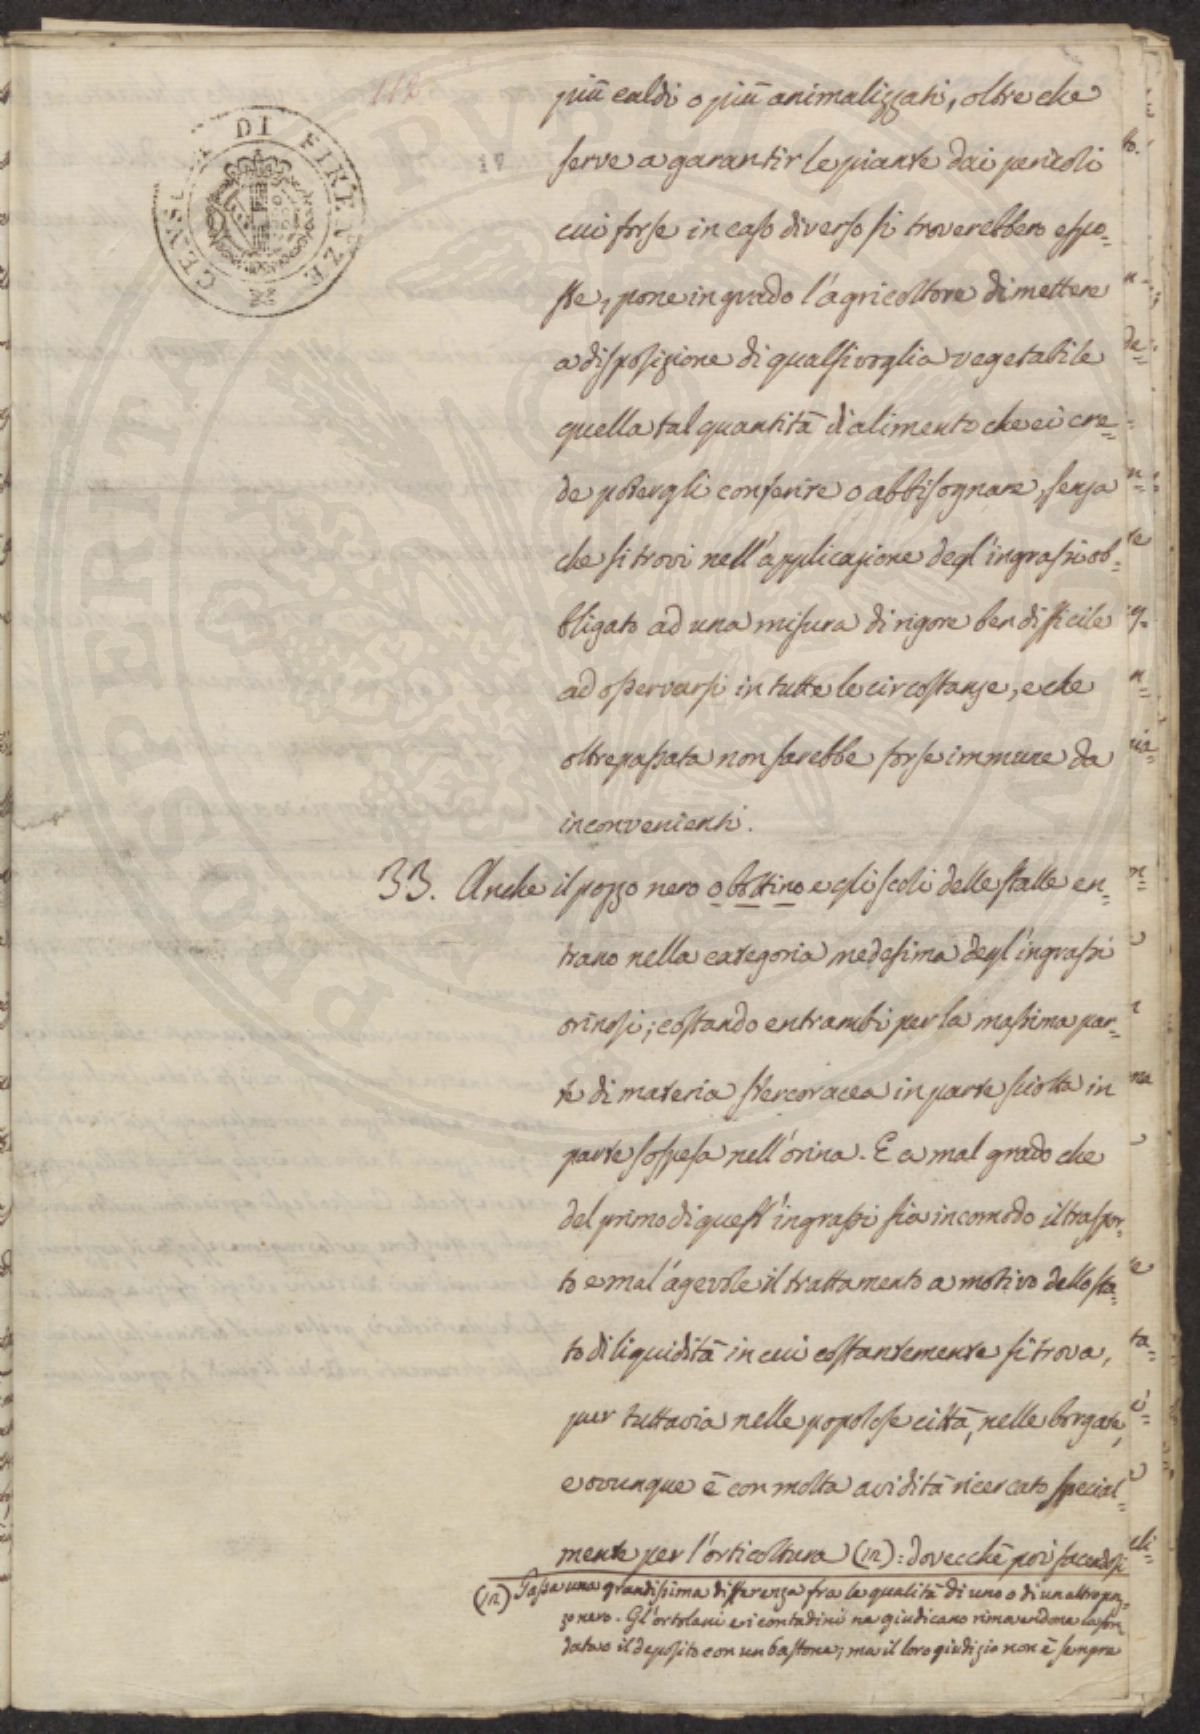 118
17
CENSU DI FIRENZE
più caldi o più animalizzati, oltre che
serve a garantir le piante dai pericoli
cui forse in caso diverso si troverebbero espo=
ste, pone in grado l'agricoltore di mettere
a disposizione di qualsivoglia vegetabile
quella tal quantità d'alimento che ei cre=
de potergli conferire o abbisognare, senza
che si trovi nell'applicazione degl'ingrassi ob=
bligato ad una misura di rigore ben difficile
ad osservarsi in tutte le circostanze, e che
oltrepassata non sarebbe forse immune da
inconvenienti.
33. Anche il pozzo nero o bottino e gli scoli delle stalle en=
trano nella categoria medesima degl'ingrassi
orinosi; costando entrambi per la massima par=
te di materia stercoracea in parte sciolta in
parte sospesa nell'orina. E a mal grado che
del primo di quest'ingrassi sia incomodo il traspor=
to e mal'agevole il trattamento a motivo dello sta=
to di liquidità in cui costantemente si trova,
per tuttavia nelle popolose città, nelle borgate,
e ovunque è con molta avidità ricercato special=
mente per l'orticoltura (12): dovecchè poi facendosi
(12) Passa una grandissima differenza fra la qualità di uno o di un altro poz=
zo nero. Gl'ortolani e i contadini na giudicano rimovendone la fon=
data o il deposito con un bastone; ma il loro giudizio non è sempre
PUBLICA
PROSPERITÀ